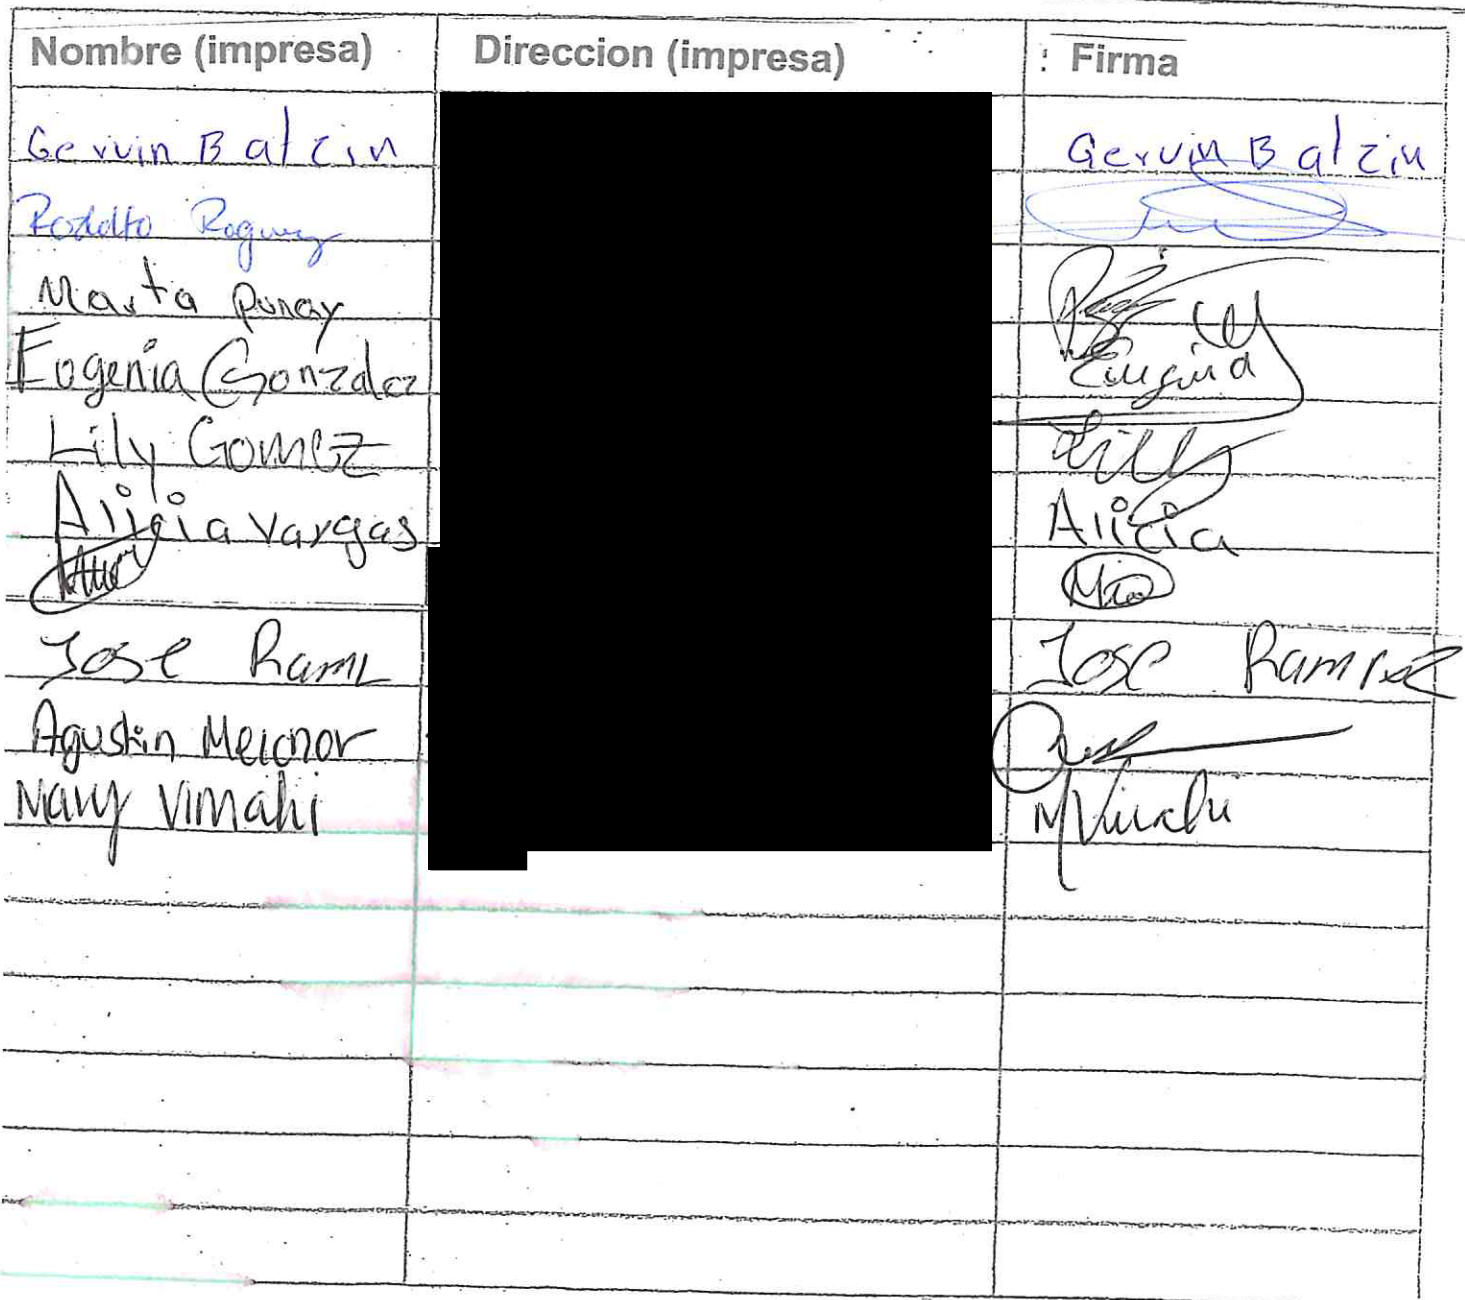 Nombre (impresa) Direccion (impresa) : Firma
Gervin Balcin Gervin Balzin
Rodolfo
Marta Punay
Eugenia Gonzalez Eugenia
Lily Gomez Lilly
Alicia Vargas Alicia
Jose Rami Jose Ramirez
Agustin Melchor
Mary Vimahi MVimahi